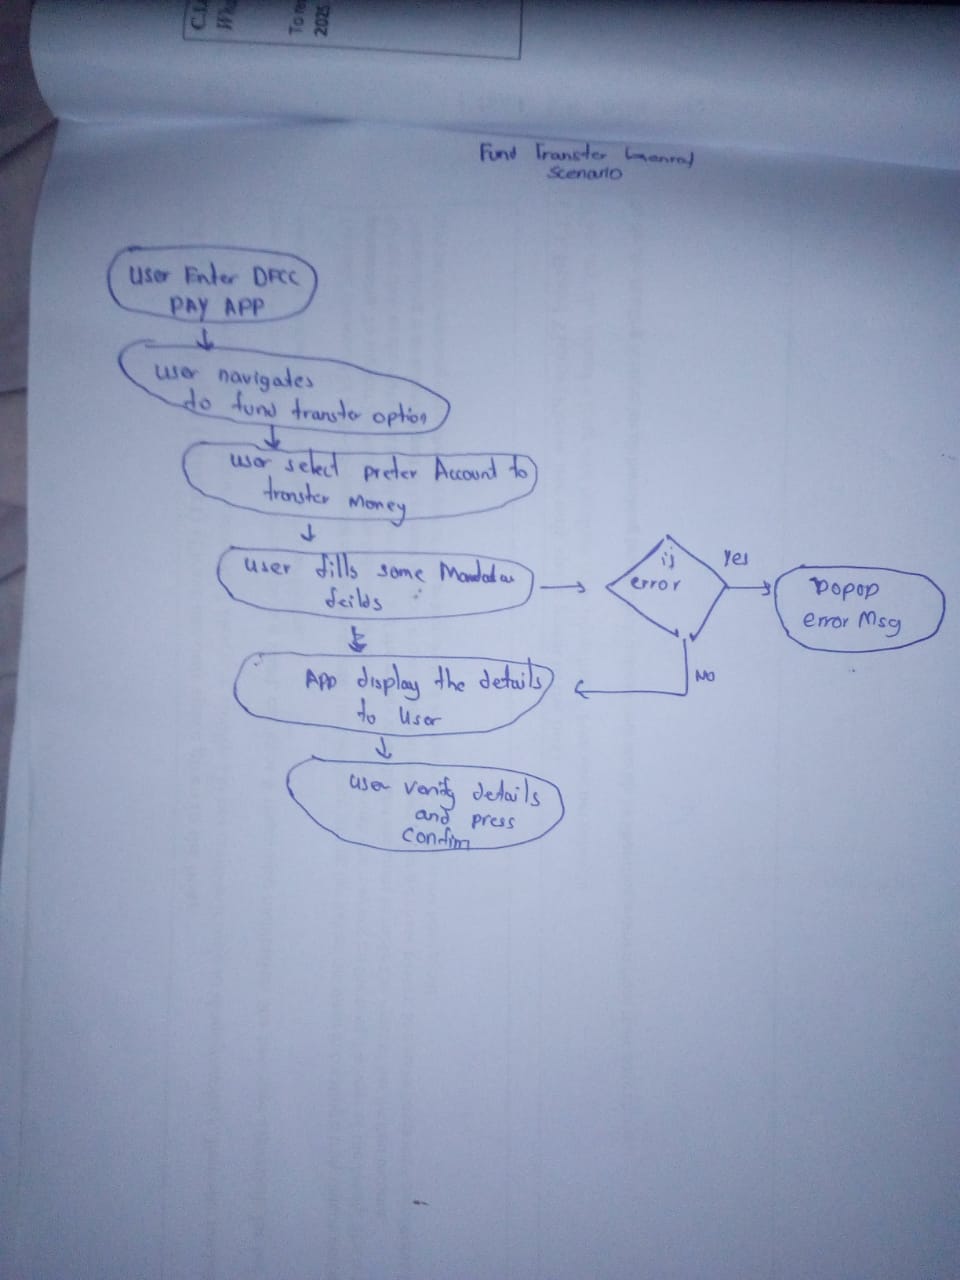 2025
Fund Transfer
Scenario
User Enter DFCC
PAY APP
user navigates
to fund transfer option
user select prefer Account to
transfer Money
user fills some
feilds
is
error
Yes
popop
error Msg
No
App display the details
to User
user verify details
and press
Confim